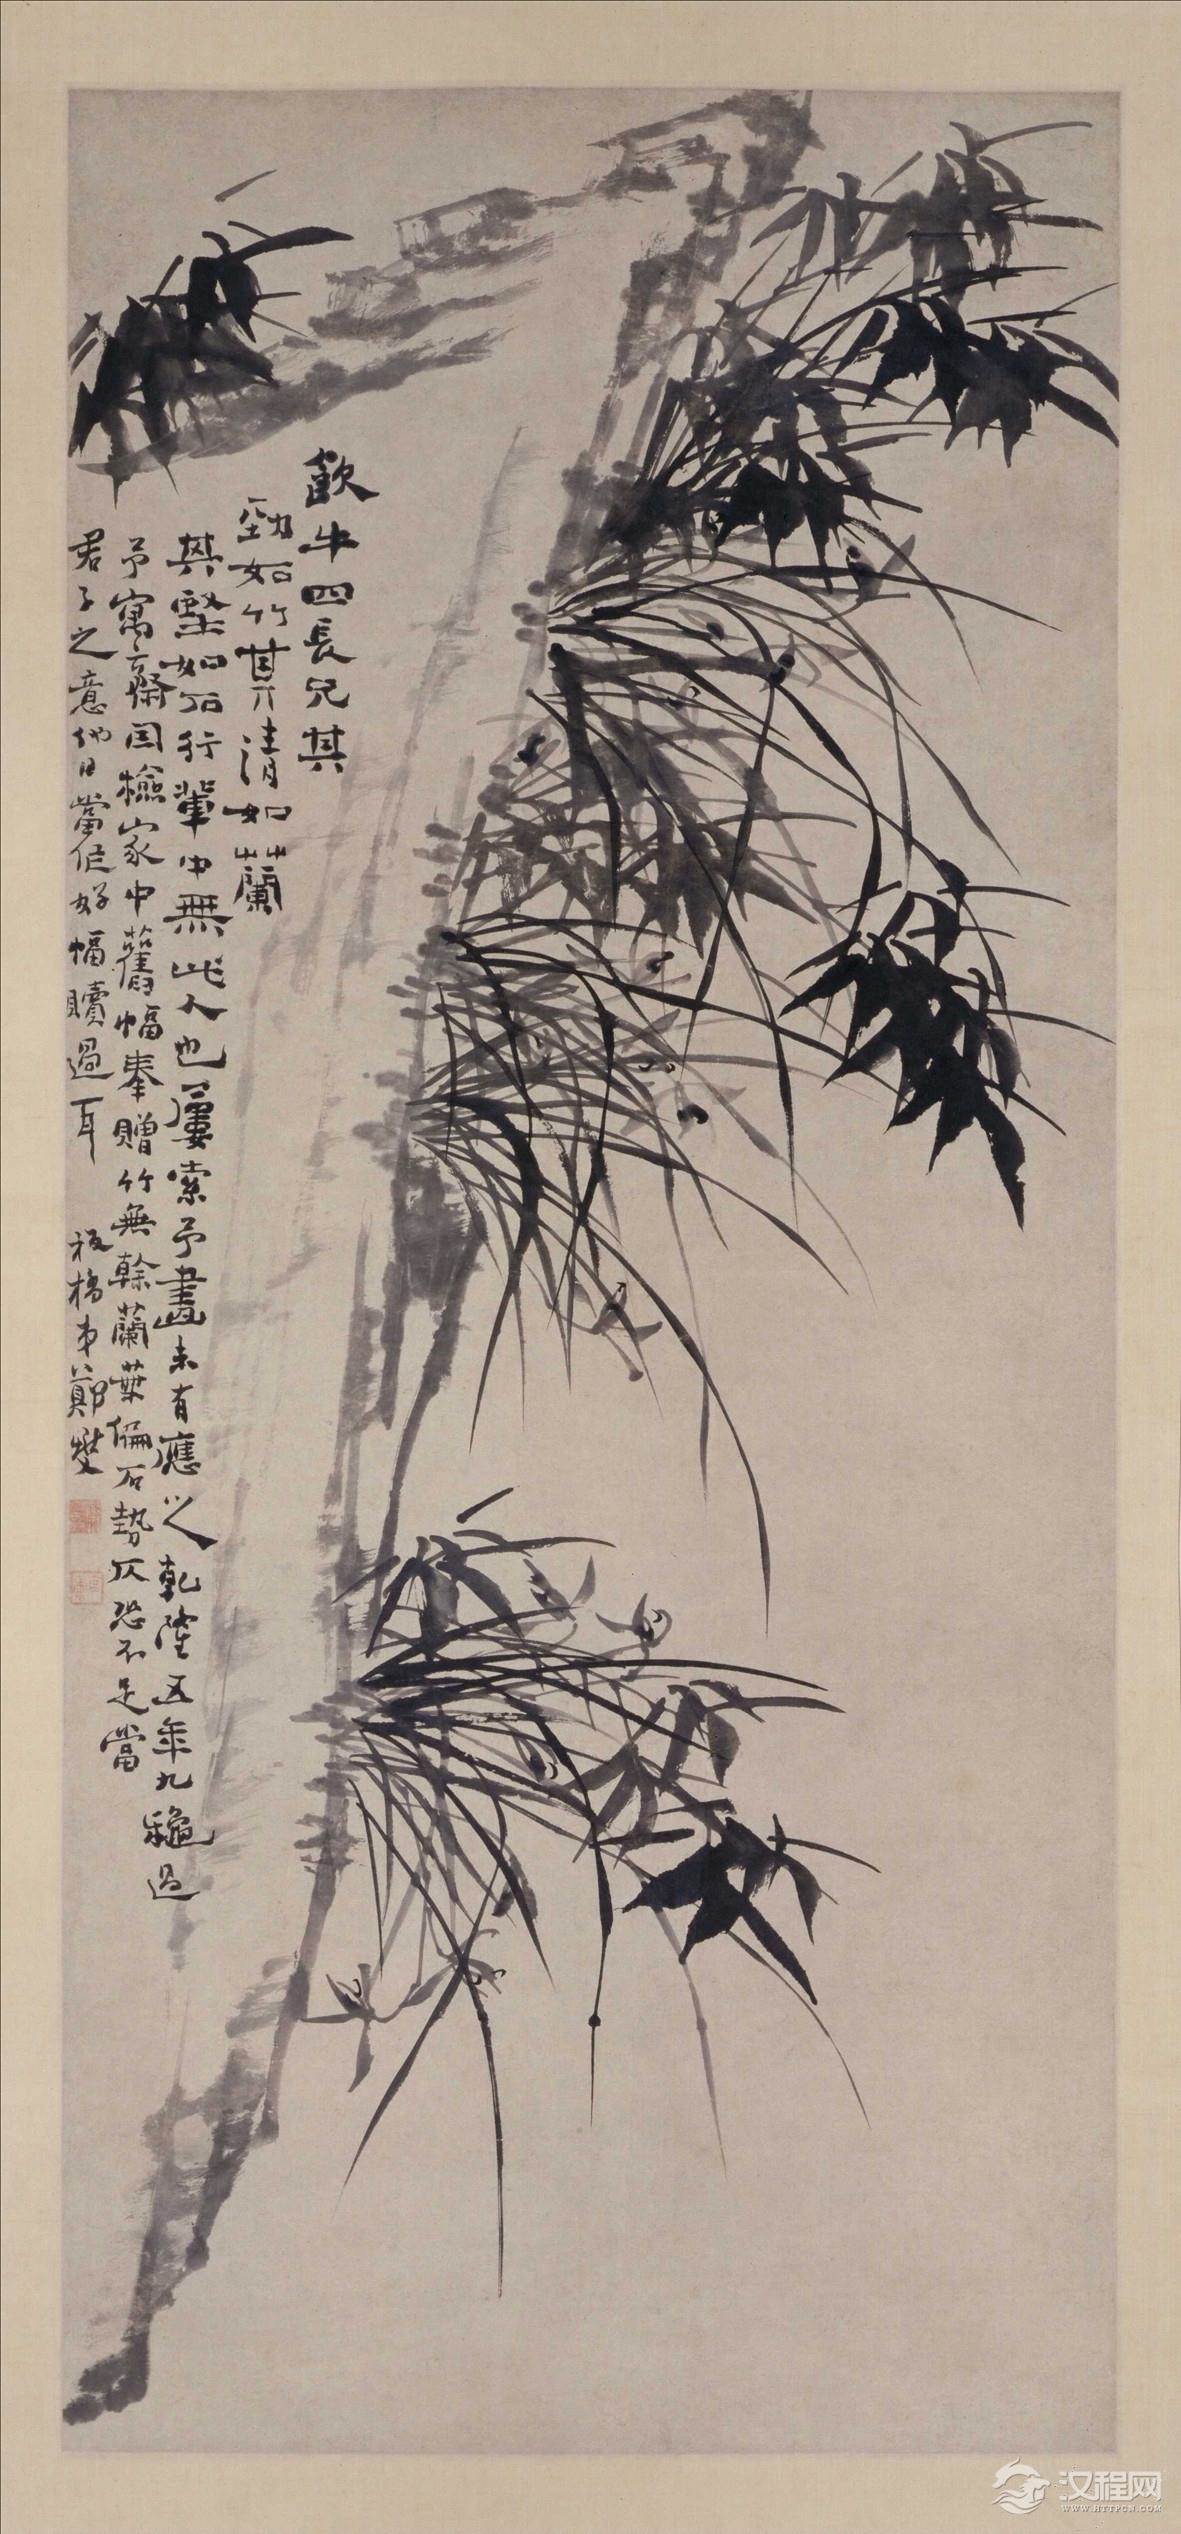 飲牛四長兄其
勁如竹其清如蘭
其堅如石行輩中無此人也屢索予畫未有應之乾隆五年九龝過
予寓齋因檢家中舊幅奉贈竹無幹蘭葉偏石勢仄恐不足當
君子之意他日當作好幅贖過耳 板橋弟鄭燮
汉程网
WWW.HTTPCN.COM